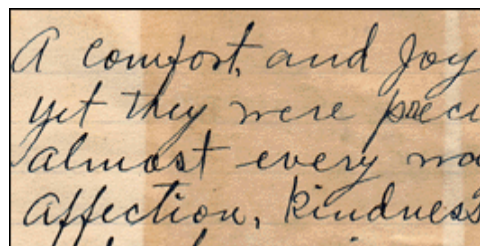 A comfort, and Joy
yet they were preci
almost every wa
affection, kindness